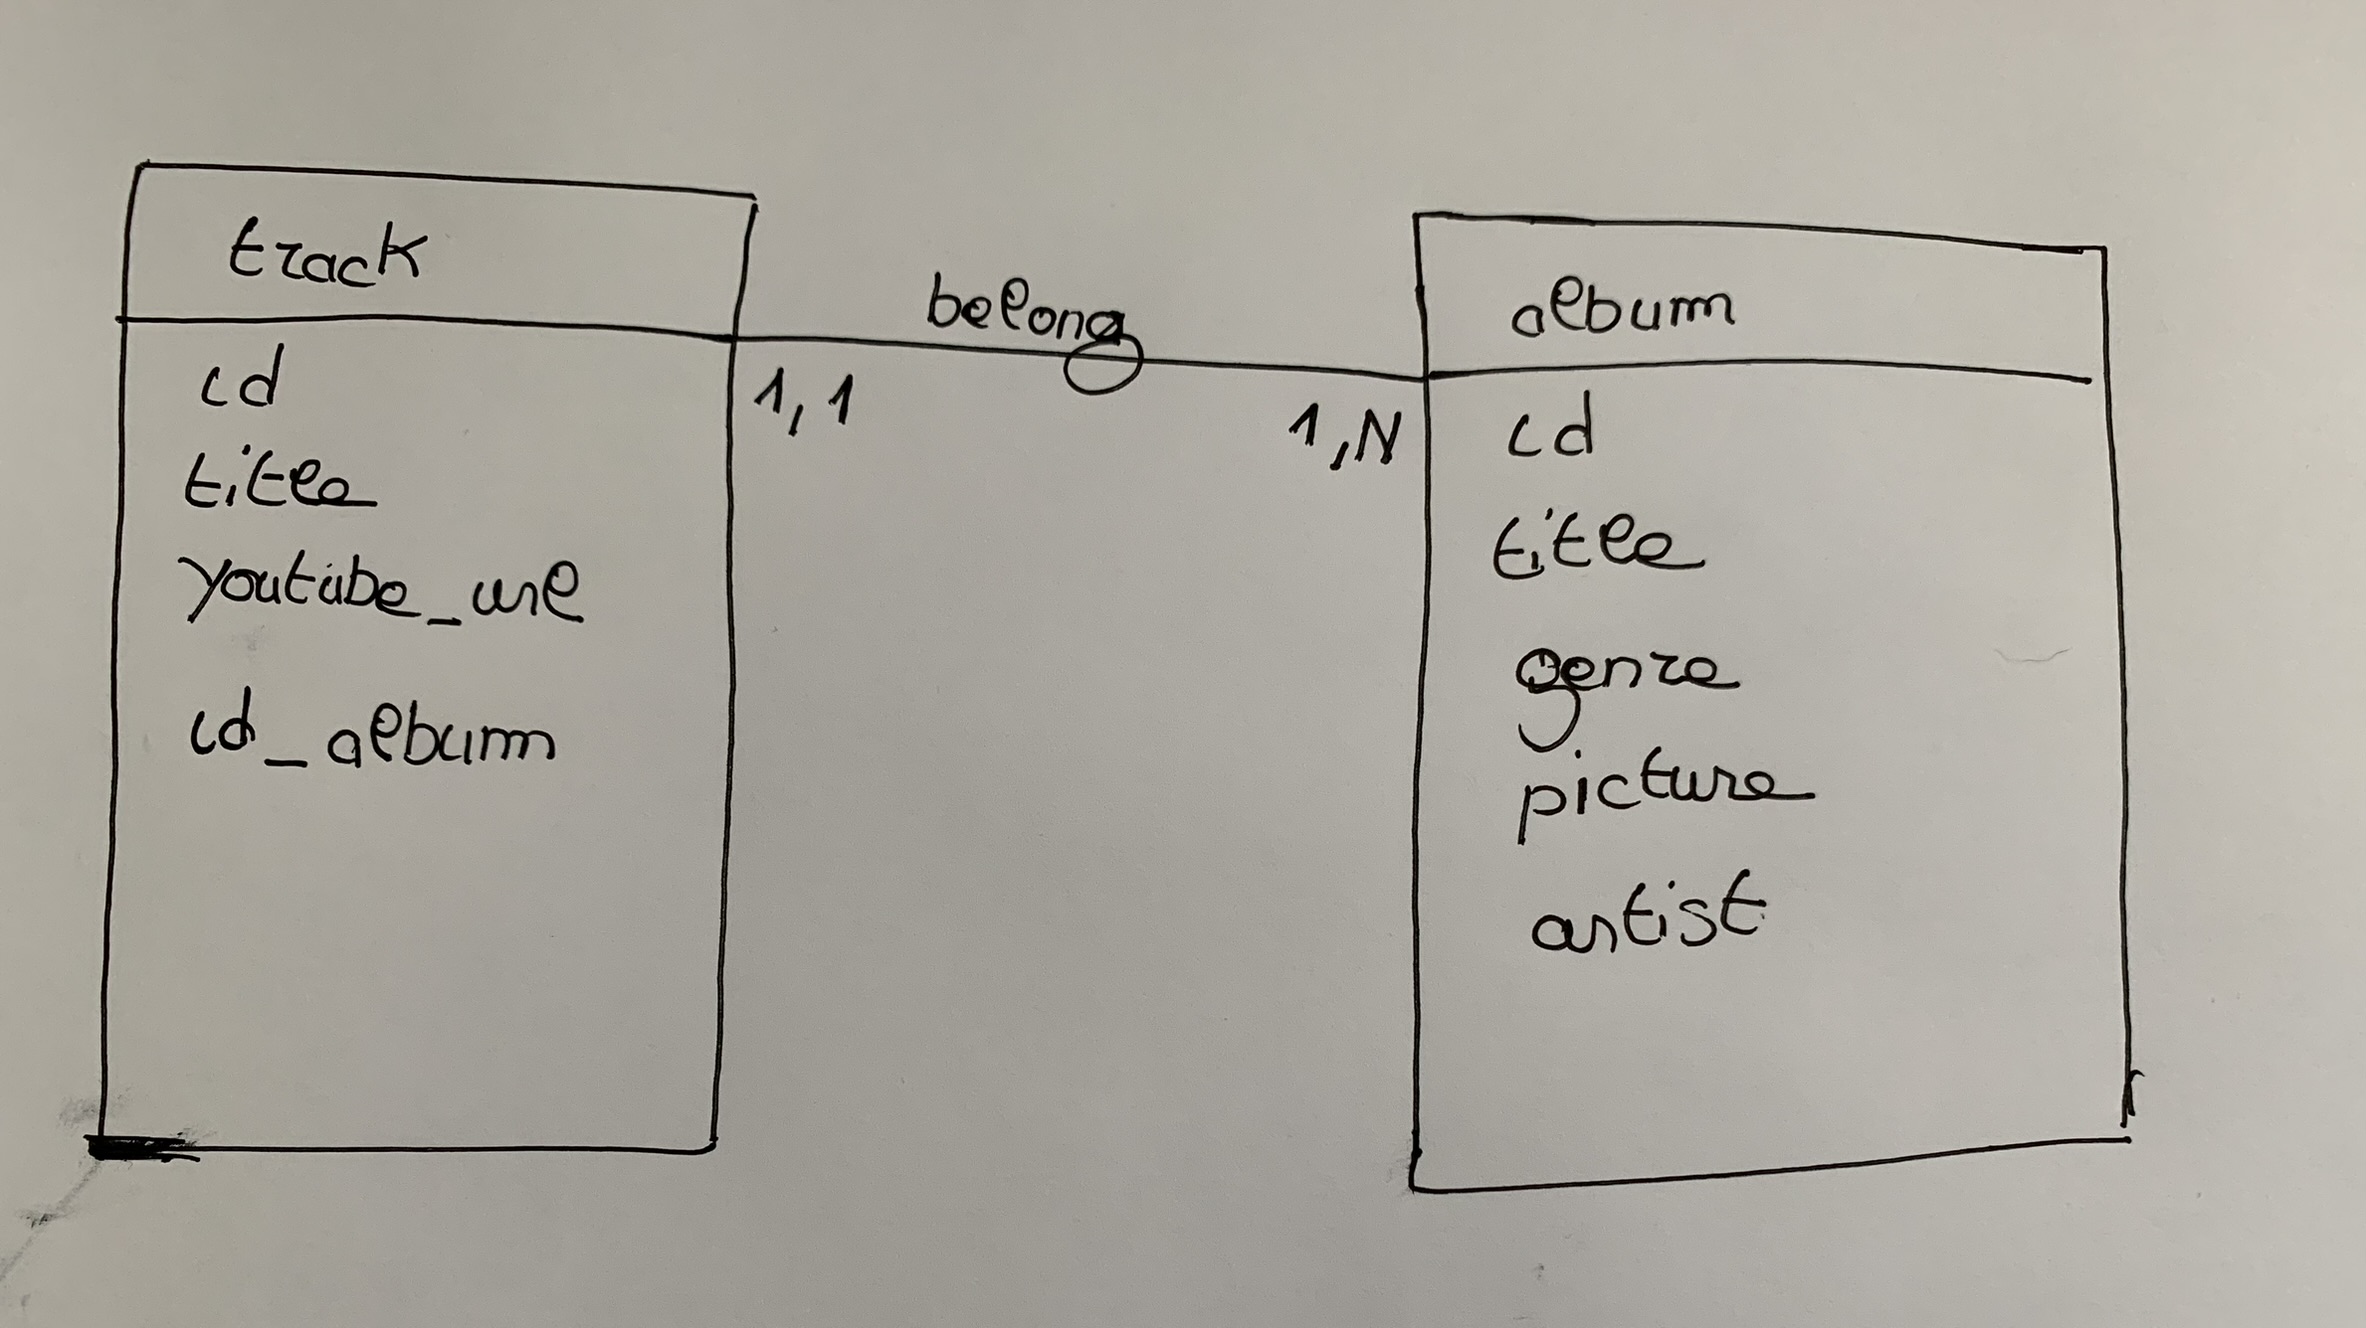 track
id
title
youtube_url
id_album
belong
1,1
1,N
album
id
title
genre
picture
artist